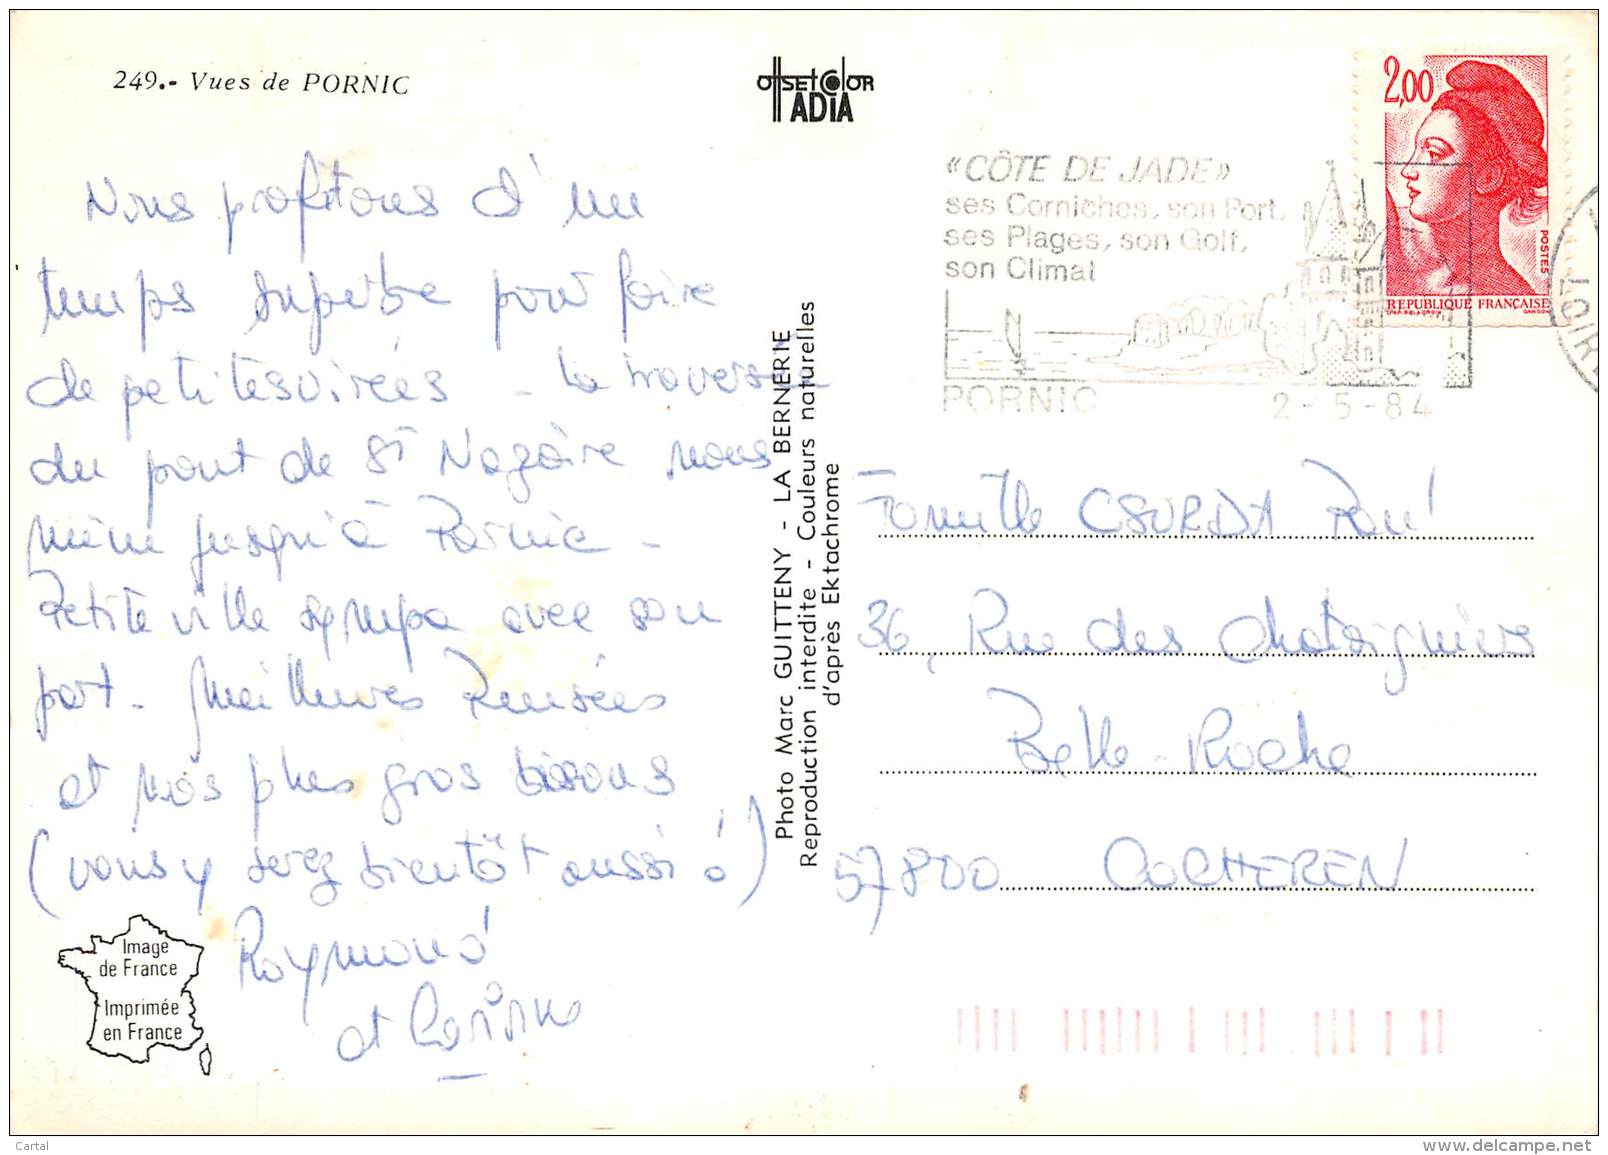 249.- Vues de PORNIC
offsetcolor
ADIA
2,00
POSTES
REPUBLIQUE FRANÇAISE
«CÔTE DE JADE»
ses Corniches, son Port,
ses Plages, son Golf,
son Climat
PORNIC
2-5-84
LOIRE
Nous profitons d'un
temps superbe pour faire
de petites virées - La traversée
du pont de St Nazaire nous
mène jusqu'à Pornic -
Petite ville sympa avec son
port. Meilleures Pensées
et nos plus gros bisous
(vous y serez bientôt aussi !)
Raymond
et
Photo Marc GUITTENY - LA BERNERIE
Reproduction interdite - Couleurs naturelles
d'après Ektachrome
Famille CSURDA
36, Rue des Chataigniers
Belle-Roche
57800 COCHEREN
Image
de France
Imprimée
en France
Cartal
www.delcampe.net